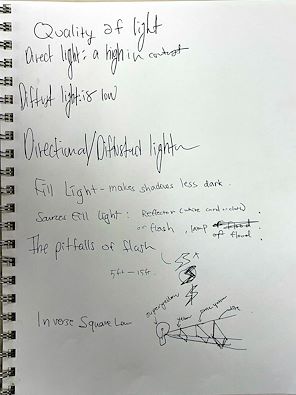 Quality of light
Direct light: a high in contrast
Diffust light is low
Directional/Diffustuct light
Fill Light - makes shadows less dark.
Sources Fill light: Reflector (white card
or flash, lamp
or flood.
The pitfalls of flash
5ft - 15ft
Inverse Square Law